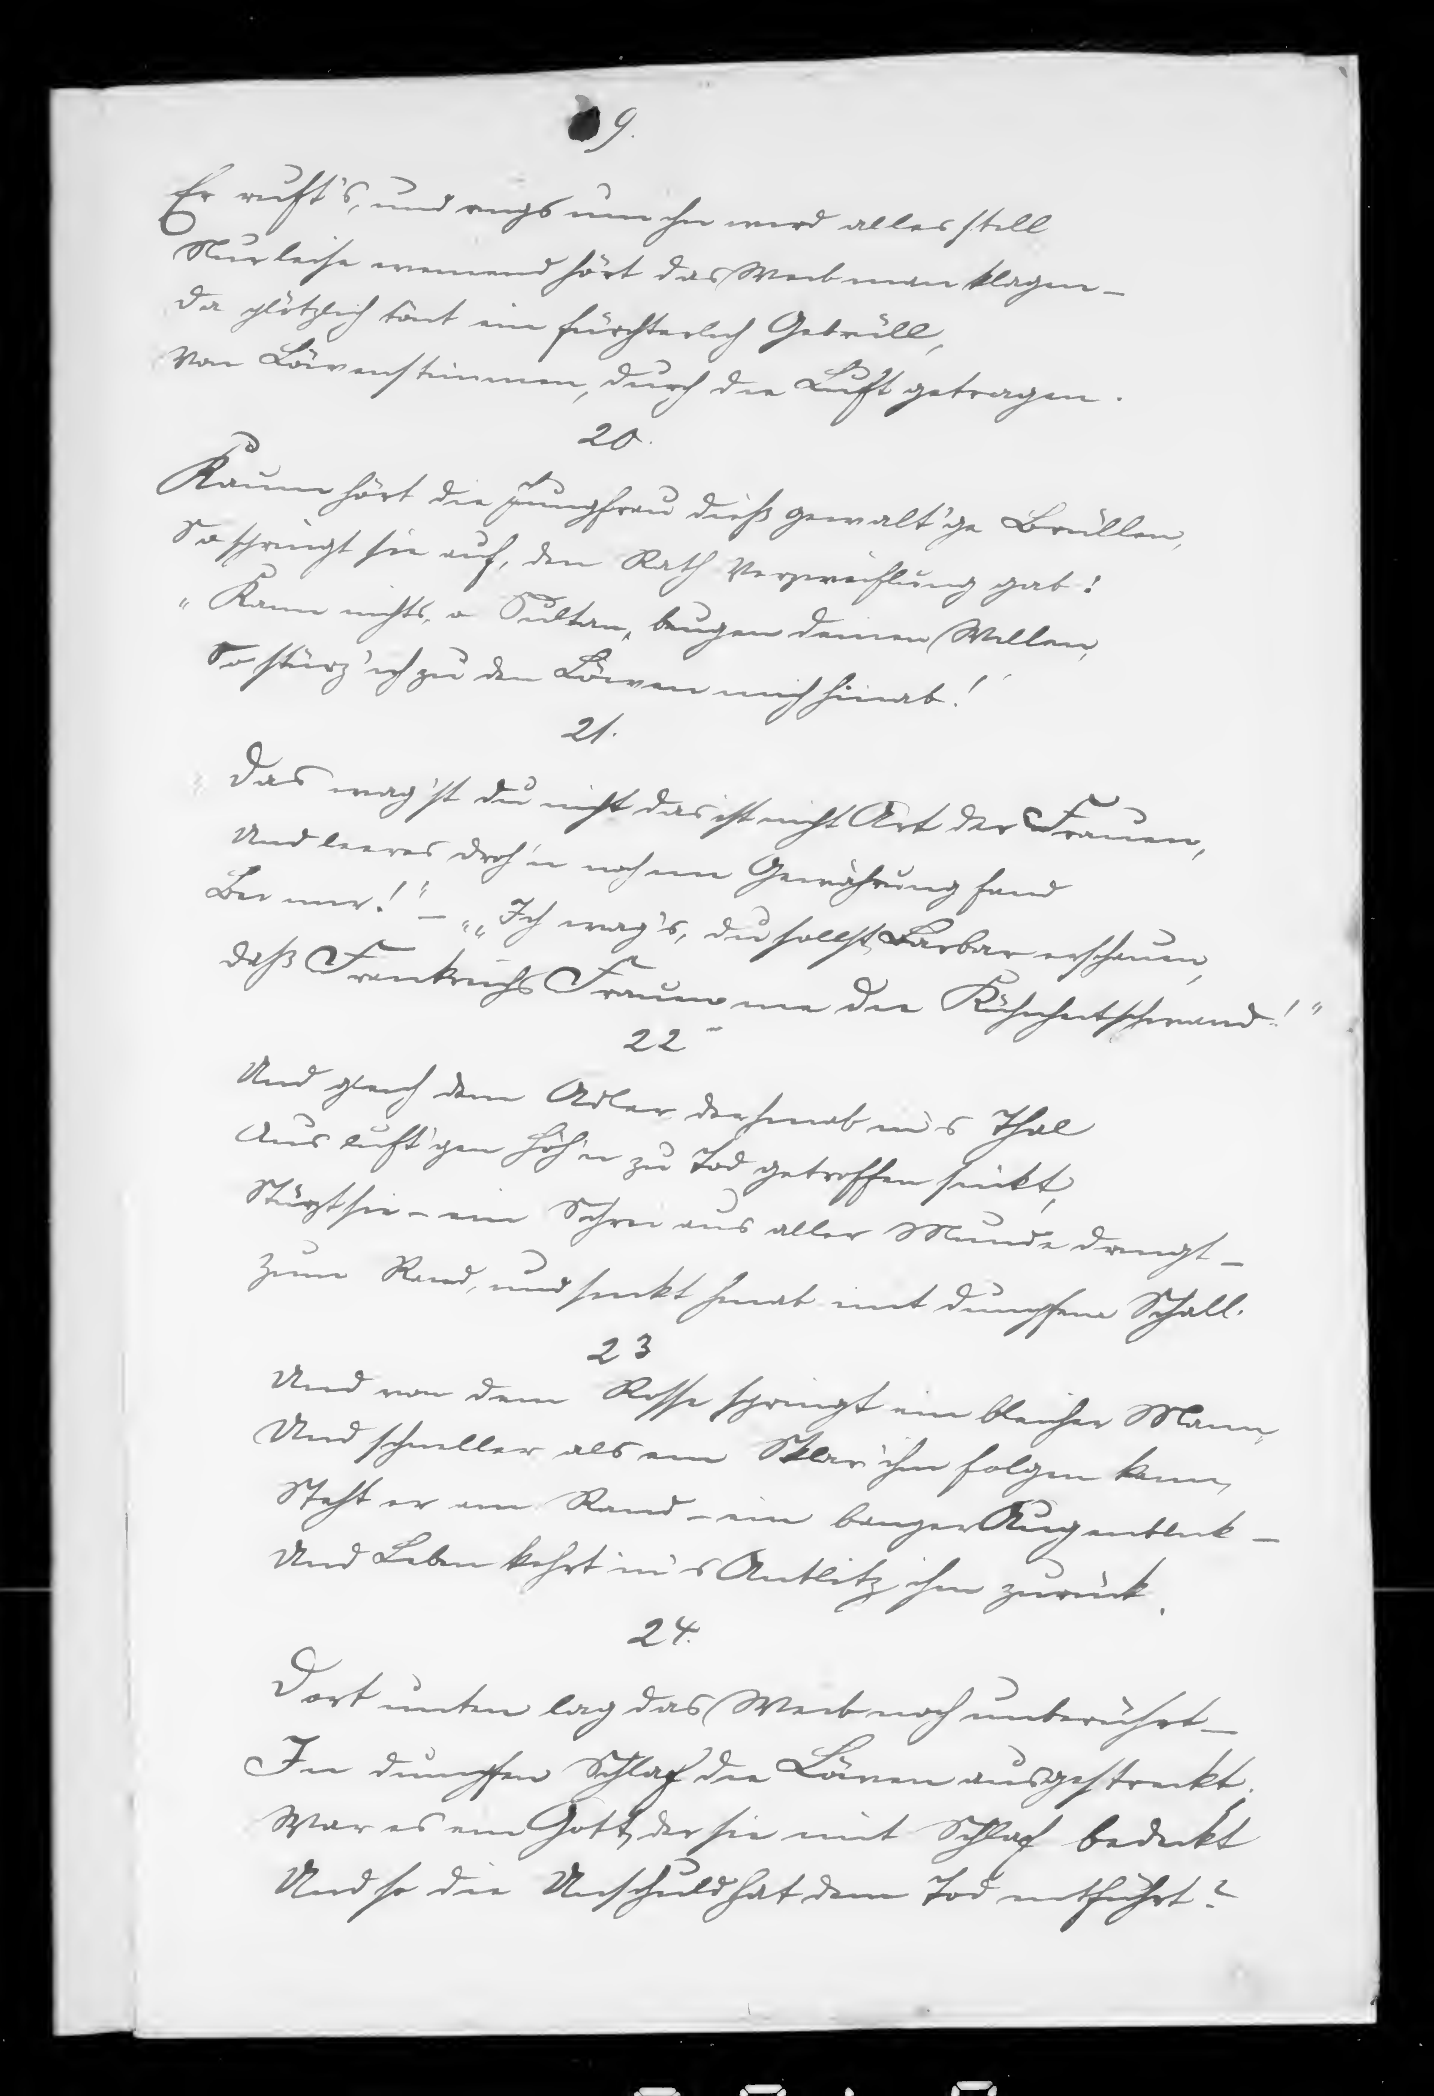 9.
Er ruft's, und rings um ihn wird alles still
Nur leise weinend hört das Weib man klagen –
Da plötzlich tönt ein fürchterlich Gebrüll,
Von Löwenstimmen, durch die Luft getragen.
20.
Kaum hört die Jungfrau dieß gewalt'ge Brüllen,
So springt sie auf, den Rath Verzweiflung gab:
„Kann nichts, o Sultan, beugen deinen Willen,
So stürz' ich zu den Löwen mich hinab!
21.
„Das wag'st du nicht das ist nicht Art der Frauen,
Und leeres Droh'n noch nie Gewährung fand
Bei mir!" – „„Ich wag's, du sollst, Barbar erschauen,
daß Frankreichs Frauen nie die Kühnheit schwand!"
22
Und gleich dem Adler, der hinab in's Thal
Aus luft'gen Höh'n zu Tod getroffen sinkt,
Stürzt sie – ein Schrei aus aller Munde dringt –
Zum Rand, und sinkt hinab mit dumpfem Schall.
23
Und von dem Rosse springt ein bleicher Mann,
Und schneller als ein Sklav' ihm folgen kann,
Steht er am Rand – ein banger Augenblick –
Und Leben kehrt in's Antlitz ihm zurück.
24.
Dort unten lag das Weib noch unberührt –
In dumpfen Schlaf die Löwen ausgestreckt.
War es ein Gott, der sie mit Schlaf bedeckt
Und so die Unschuld hat dem Tod entführt?